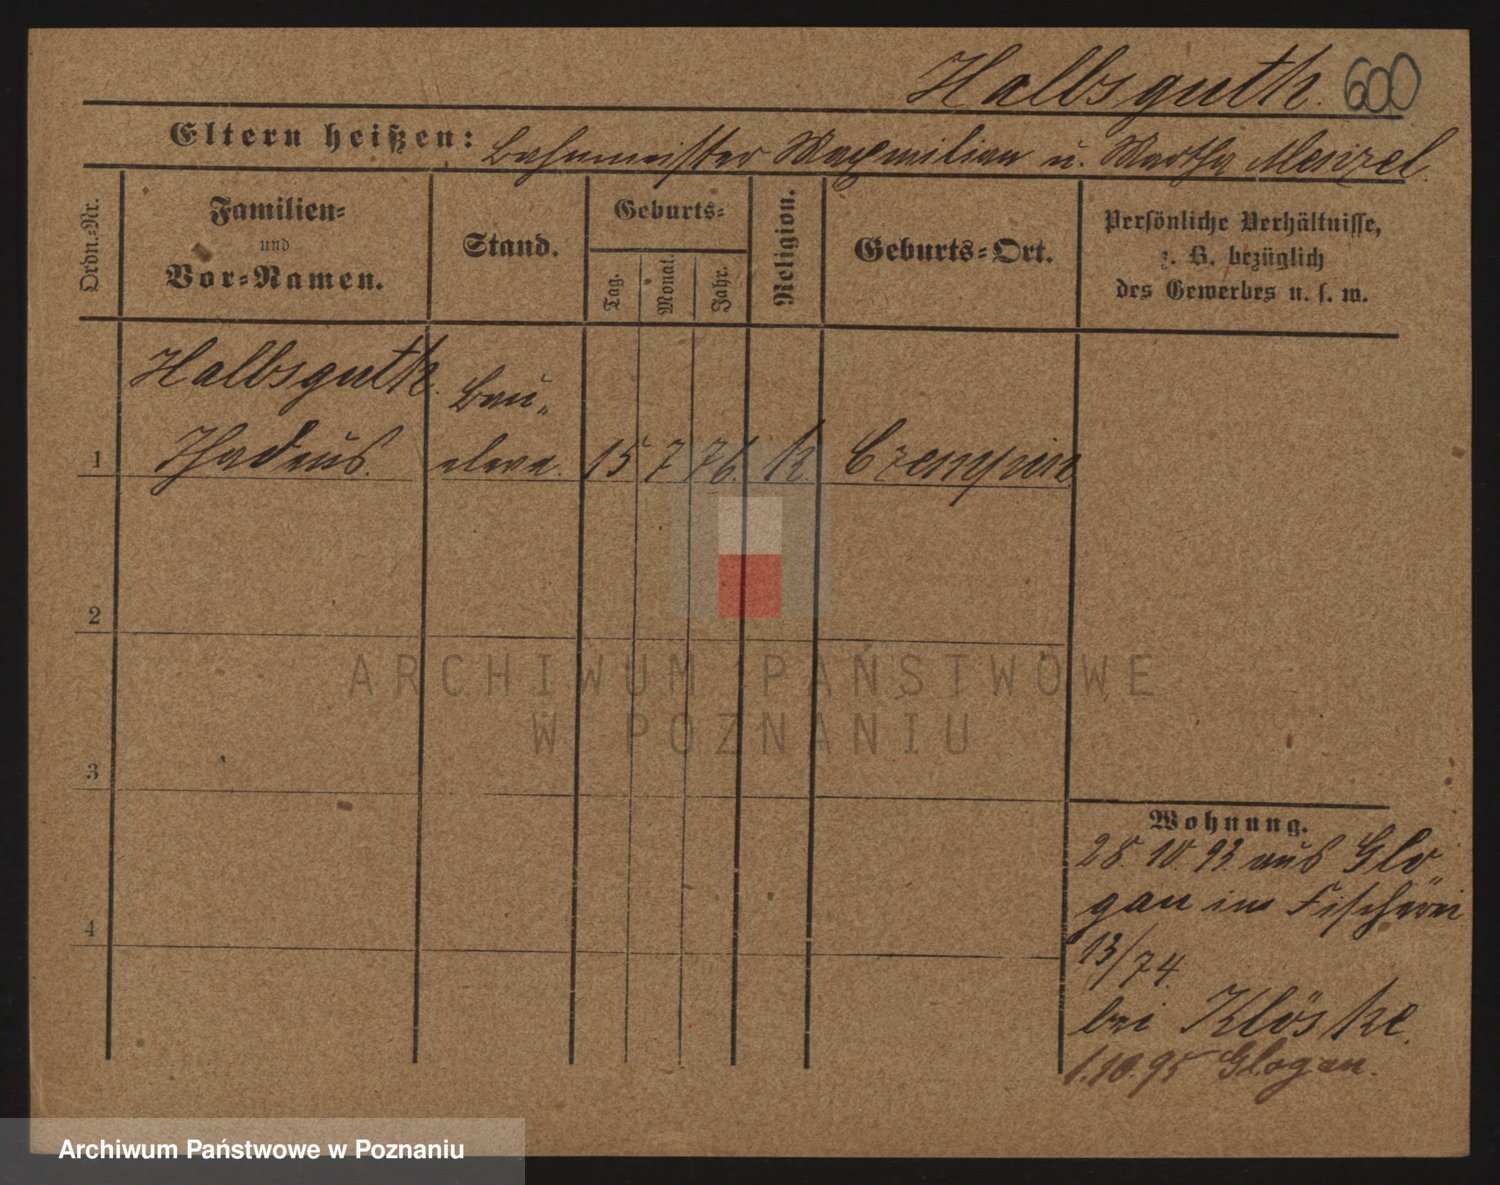 Halbsguth. 600
Eltern heißen: Bahnmeister Maxmilian u. Martha Menzel.
Ordn.-Nr.
Familien-
und
Vor-Namen.
Stand.
Geburts-
Tag.
Monat.
Jahr.
Religion.
Geburts-Ort.
Persönliche Verhältnisse,
z. B. bezüglich
des Gewerbes u. s. w.
Halbsguth. Bau-
1 Thadeus. eleve. 15 7 76. k. Czempin
2
3
4
Wohnung.
28.10.93. aus Glo-
gau in Fischerei
13/74.
bei Klöske.
1.10.95 Glogau.
ARCHIWUM PAŃSTWOWE
W POZNANIU
Archiwum Państwowe w Poznaniu